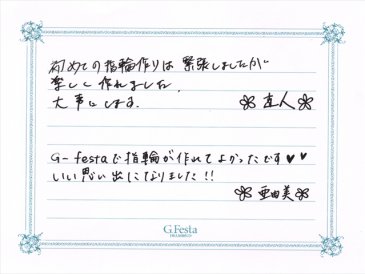 初めての指輪作りは 緊張しましたが
楽しく作れました。
大事にします。
直人
G-festaで指輪が作れてよかったです♥♥
いい思い出になりました!!
亜由美
G.Festa